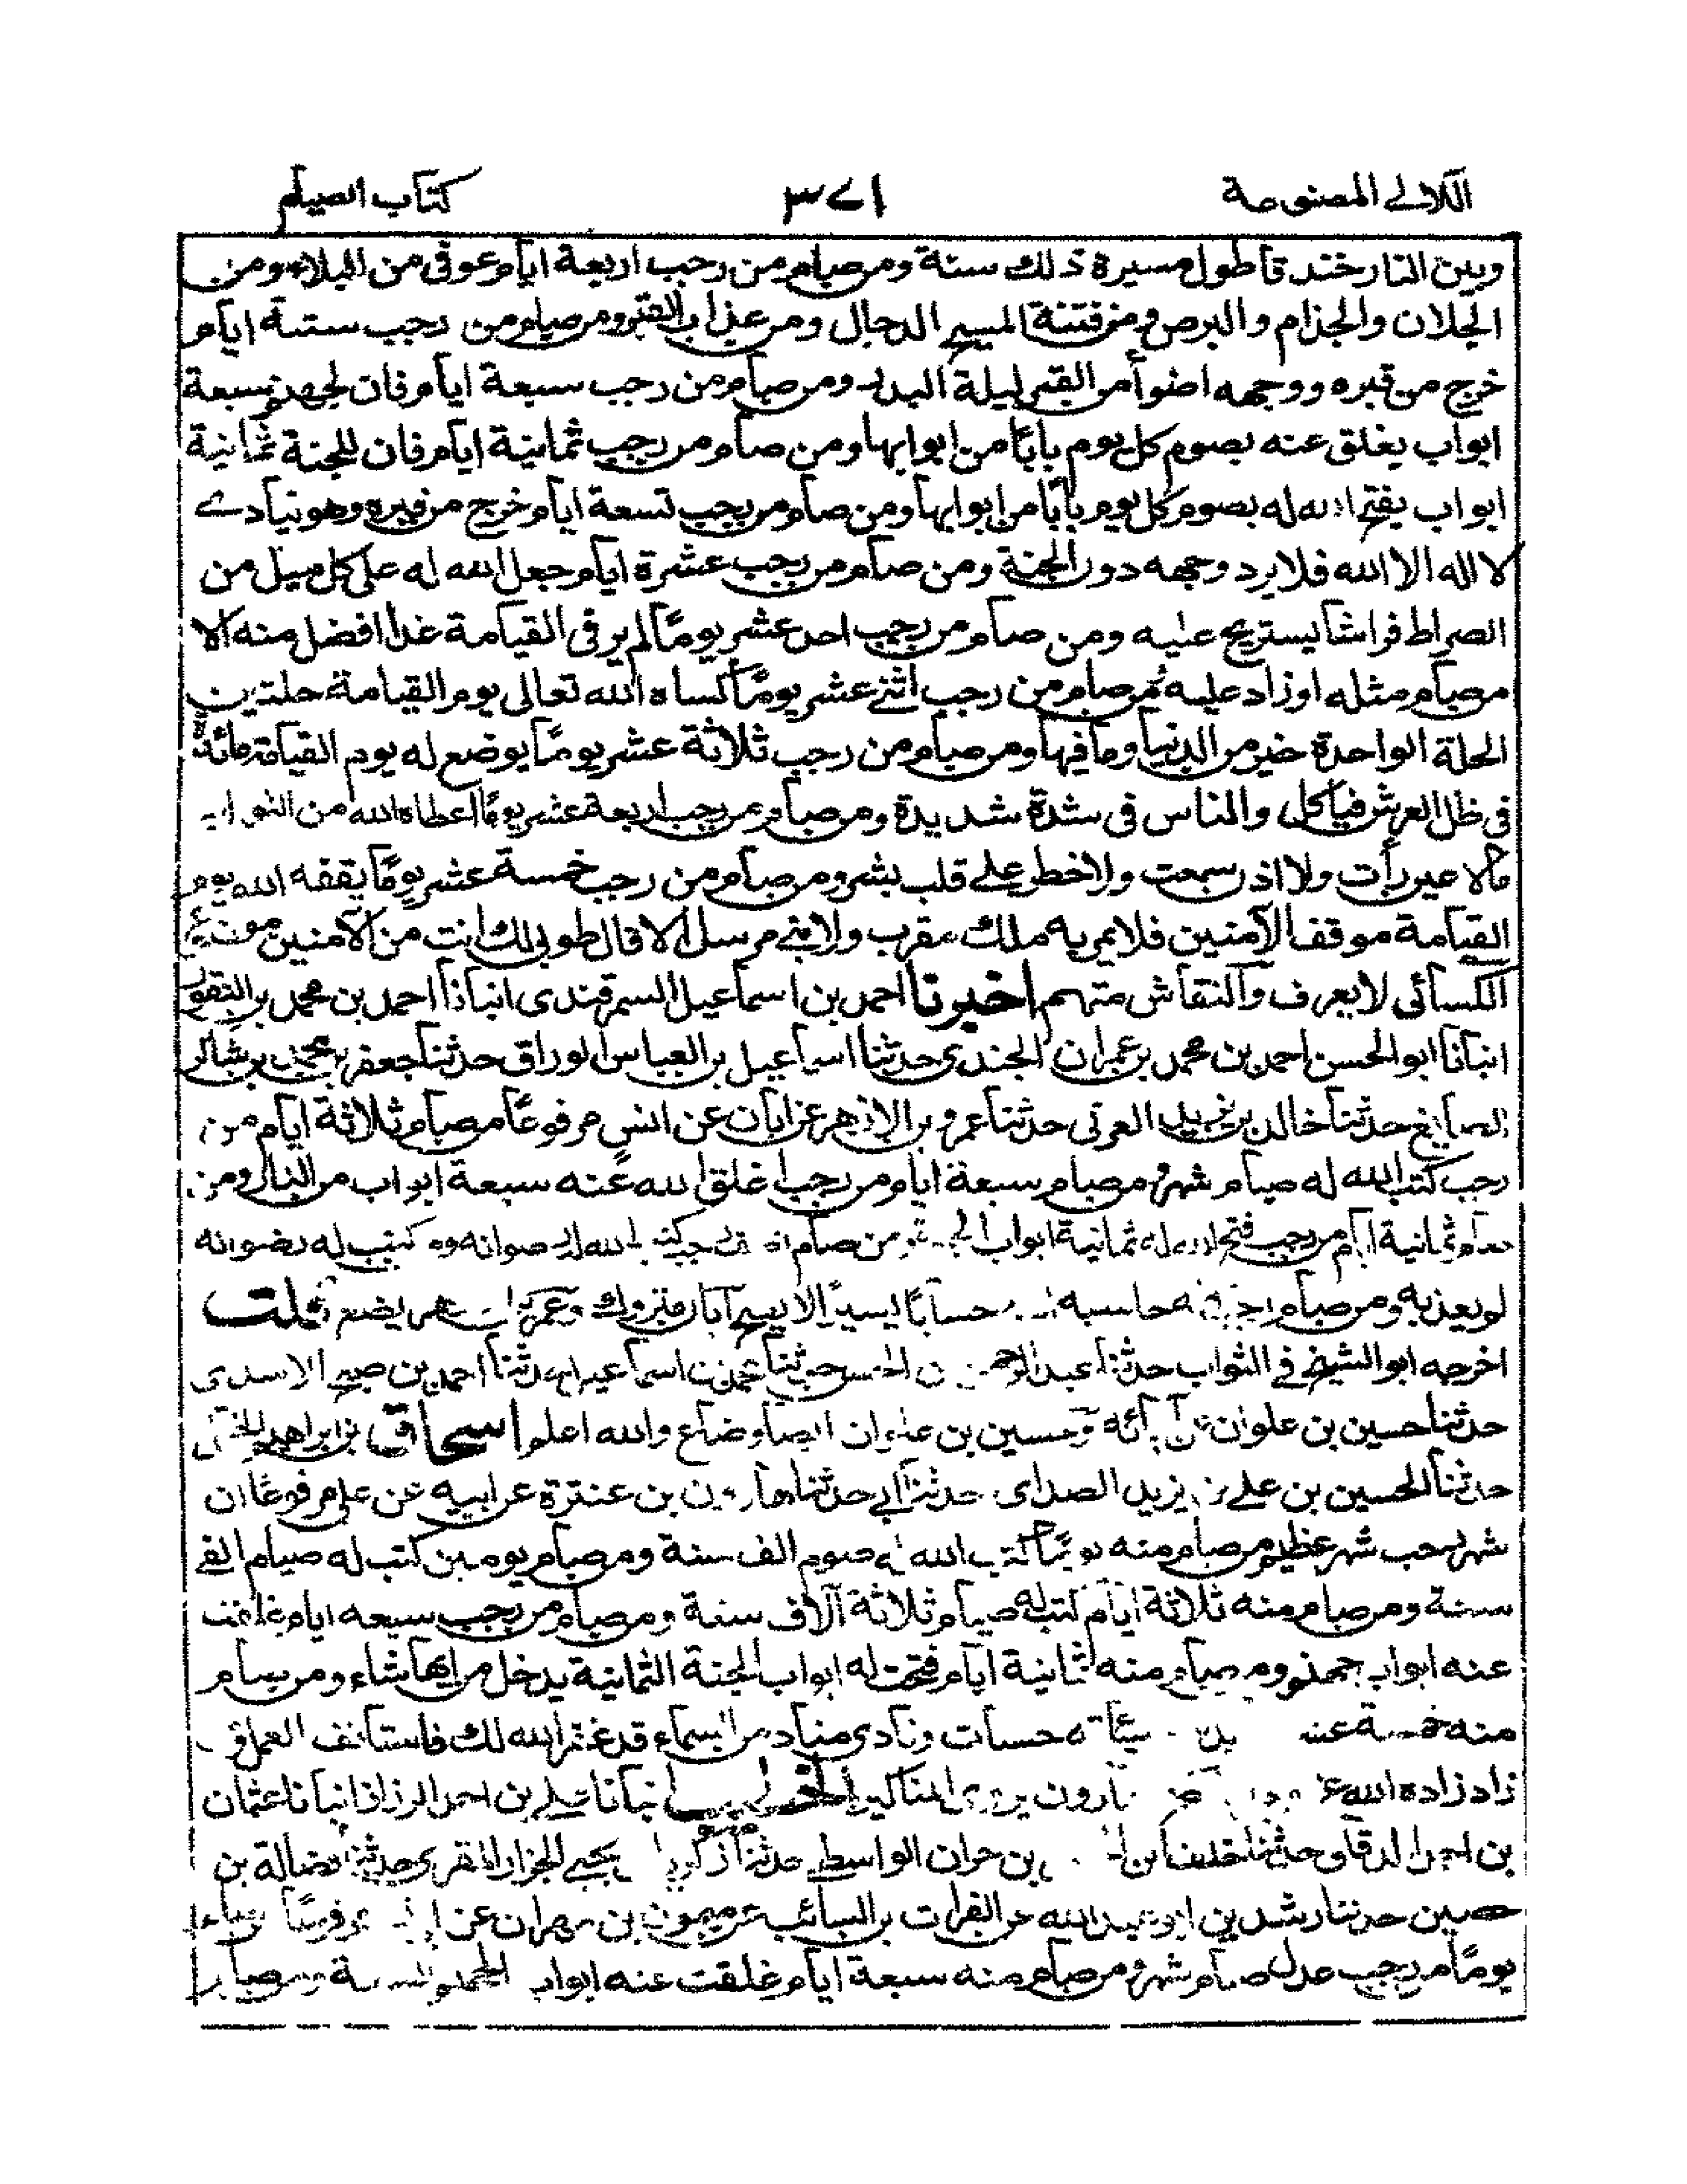 اللآلى المصنوعة ٣٧١ كتاب الصيام
وبين النار خندقا طول مسيرة ذلك سنة ومن صام من رجب اربعة ايام عوفى من البلاء ومن
الجذام والبرص ومن فتنة المسيح الدجال ومن عذاب القبر ومن صام من رجب ستة ايام
خرج من قبره ووجهه اضوأ من القمر ليلة البدر ومن صام من رجب سبعة ايام فان لجهنم سبعة
ابواب يغلق عنه بصوم كل يوم بابا من ابوابها ومن صام من رجب ثمانية ايام فان للجنة ثمانية
ابواب يفتح الله له بصوم كل يوم بابا من ابوابها ومن صام من رجب تسعة ايام خرج من قبره وهو ينادى
لا اله الا الله فلا يرد وجهه دون الجنة ومن صام من رجب عشرة ايام جعل الله له على كل ميل من
الصراط فراشا يستريح عليه ومن صام من رجب احد عشر يوما لم ير فى القيامة غدا افضل منه الا
من صام مثله او زاد عليه ومن صام من رجب اثنى عشر يوما كساه الله تعالى يوم القيامة حلتين
الحلة الواحدة خير من الدنيا وما فيها ومن صام من رجب ثلاثة عشر يوما يوضع له يوم القيامة مائدة
فى ظل العرش فيأكل والناس فى شدة شديدة ومن صام من رجب اربعة عشر يوما اعطاه الله من الثواب
مالا عين رأت ولا اذن سمعت ولا خطر على قلب بشر ومن صام من رجب خمسة عشر يوما يقفه الله يوم
القيامة موقف الآمنين فلا يمر به ملك مقرب ولا نبى مرسل الا قال طوبى لك انت من الآمنين
الكسائى لا يعرف والنقاش متهم اخبرنا احمد بن اسماعيل السمرقندى انبانا احمد بن محمد بن النقور
انبانا ابو الحسن احمد بن محمد بن عمران الجندى حدثنا اسماعيل بن العباس الوراق حدثنا جعفر بن محمد بن شاكر
الصايغ حدثنا خالد بن يزيد حدثنا عمرو بن الازهر عن ابان عن انس مرفوعا من صام ثلاثة ايام من
رجب كتب الله له صيام شهر ومن صام سبعة ايام من رجب اغلق الله عنه سبعة ابواب من النار ومن
صام ثمانية ايام من رجب فتح الله له ثمانية ابواب ومن صام كتب الله له رضوانه ومن كتب له رضوانه
لم يعذبه ومن صام حاسبه حسابا يسيرا لا يصح ابان متروك وعمرو يضع قلت
اخرجه ابو الشيخ فى الثواب حدثنا عبد الرحمن بن الحسن حدثنا اسماعيل حدثنا احمد بن الاسدى
حدثنا حسين بن علوان عن ابان به وحسين بن علوان ايضا وضاع والله اعلم اسحاق بن ابراهيم الختلى
حدثنا الحسين بن على بن يزيد الصدائى حدثنا ابى حدثنا هارون بن عنترة عن ابيه عن على مرفوعا ان
شهر رجب شهر عظيم من صام منه يوما كتب الله له صوم الف سنة ومن صام يومين كتب له صيام الفى
سنة ومن صام منه ثلاثة ايام كتب له صيام ثلاثة آلاف سنة ومن صام من رجب سبعه ايام غلقت
عنه ابواب جهنم ومن صام منه ثمانية ايام فتحت له ابواب الجنة الثمانية يدخل من ايها شاء ومن صام
منه خمسة عشر حسنات ونادى مناد من السماء قد غفر الله لك فاستأنف العمل
زاد زاده الله هارون يروى المناكير الخطيب انبانا على بن احمد الرزاز انبانا عثمان
بن احمد الدقاق حدثنا بن حران الواسطى حدثنا يحيى الخزاز المقرى حدثنا فضالة بن
حصين حدثنا رشدين ابو عبد الله عن الفرات بن السائب عن ميمون بن مهران عن
يوما من رجب عدل صيام شهر ومن صام منه سبعة ايام غلقت عنه ابواب